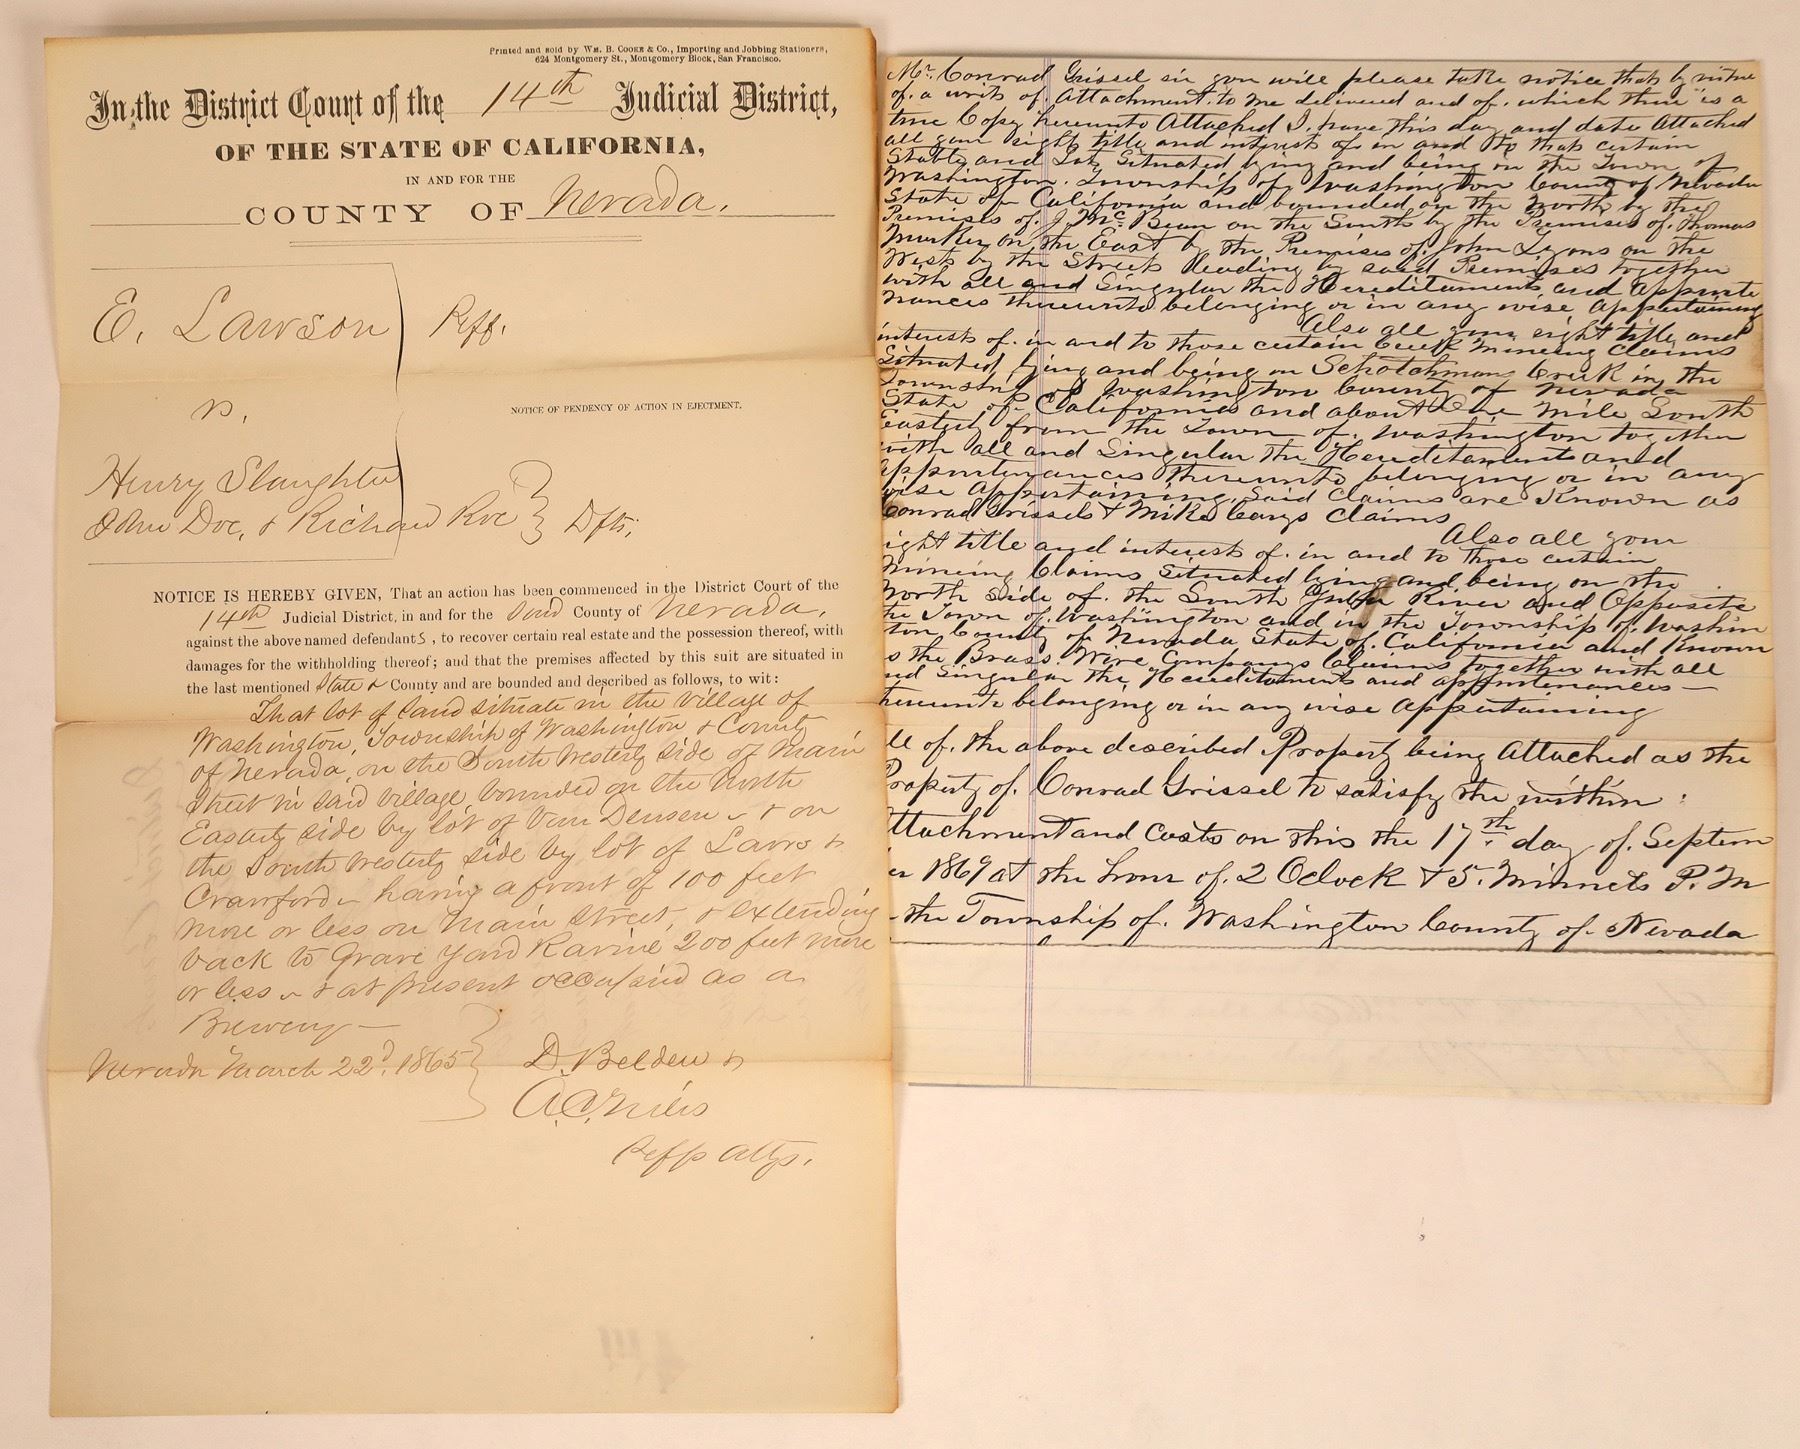 Printed and sold by WM. B. COOKE & Co., Importing and Jobbing Stationers,
624 Montgomery St., Montgomery Block, San Francisco.
In the District Court of the 14th Judicial District,
OF THE STATE OF CALIFORNIA,
IN AND FOR THE
COUNTY OF Nevada.
E. Lawson Plff.
vs.
NOTICE OF PENDENCY OF ACTION IN EJECTMENT.
Henry Slaughter
John Doe, & Richard Roe Dfts,
NOTICE IS HEREBY GIVEN, That an action has been commenced in the District Court of the
14th Judicial District, in and for the said County of Nevada,
against the above named defendants, to recover certain real estate and the possession thereof, with
damages for the withholding thereof; and that the premises affected by this suit are situated in
the last mentioned State & County and are bounded and described as follows, to wit:
That lot of land situate in the village of
Washington, Township of Washington & County
of Nevada, on the South Westerly side of Main
Street in said village, bounded on the North
Easterly side by lot of Van Deusen & on
the South Westerly side by lot of Laws &
Crawford having a front of 100 feet
more or less on Main Street, & extending
back to Grave Yard Ravine 200 feet more
or less & at present occupied as a
Brewery
Nevada March 22d. 1865 D. Belden &
A.C. Niles
Plffs attys.
Mr. Conrad Grissel sir you will please take notice that by virtue
of a writ of Attachment to me delivered and of which this is a
true Copy hereunto Attached I have this day and date Attached
all your right title and interest of in and to that certain
Stable and Lot Situated lying and being in the Town of
Washington. Township of Washington County of Nevada
State of California and bounded on the North by the
Premises of J. McBean on the South by the Premises of Thomas
on the East by the Premises of John Lyons on the
West by the Street leading by said Premises together
with all and Singular the Hereditaments and Appurte
nances thereunto belonging or in any wise Appertaining
Also all your right title and
interest of in and to those certain Creek Mineing Claims
Situated lying and being on Schotchmans Creek in the
Township of Washington County of Nevada
State of California and about One Mile South
Easterly from the Town of Washington together
with all and Singular the Hereditaments and
Appurtenances thereunto belonging or in any
wise Appertaining Said Claims are Known as
Conrad Grissels & Mike Carys Claims
Also all your
ight title and interest of in and to those certain
Mineing Claims Situated lying and being on the
North side of the South Yuba River and Opposite
the Town of Washington and in the Township of Washin
ton County of Nevada State of California and Known
s the Brass Wire Companys Claims together with all
nd Singular the Hereditaments and appurtenances
hereunto belonging or in any wise Appertaining
ll of the above described Property being Attached as the
Property of Conrad Grissel to satisfy the within
ttachment and Costs on this the 17th day of Septem
er 1867 at the hour of 2 Oclock & 5 Minnets P.M
the Township of Washington County of Nevada